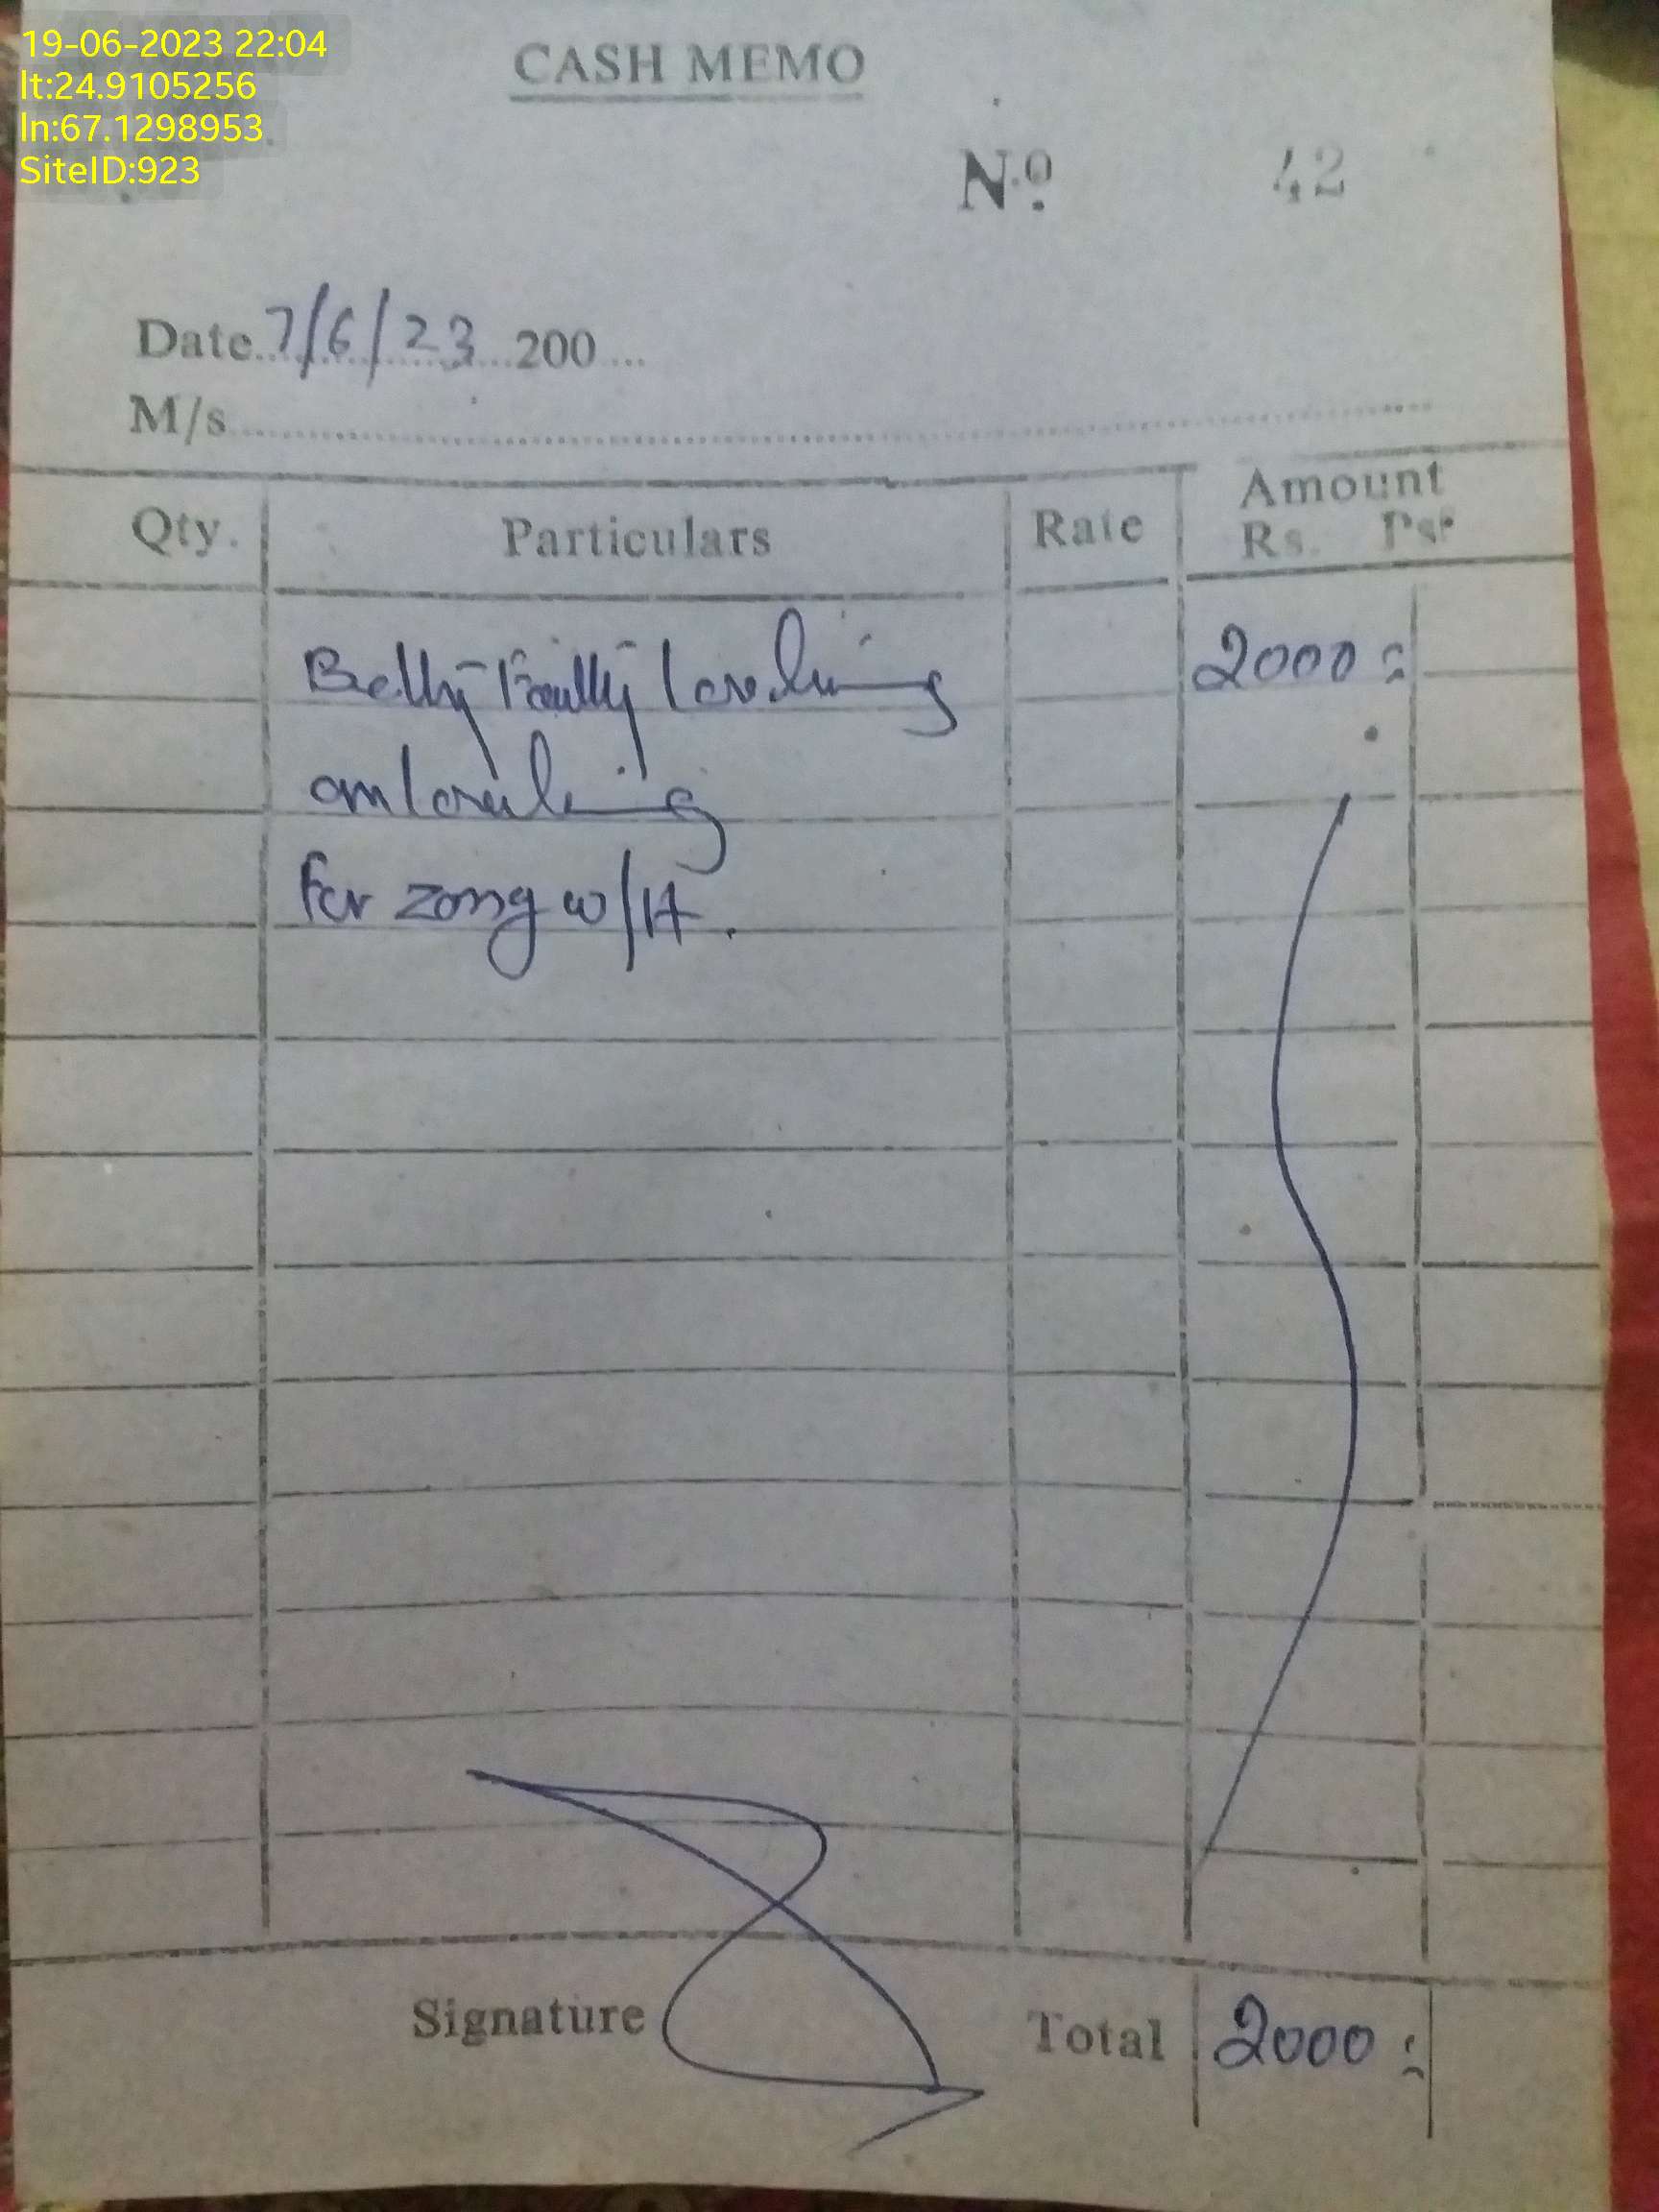 19-06-2023 22:04
lt:24.9105256
ln:67.1298953
SiteID:923
CASH MEMO
No. 42
Date 7/6/23 200
M/s
Qty. Particulars Rate Amount
Rs. Ps.
Faulty loading 2000
for zong w/H.
Signature Total 2000